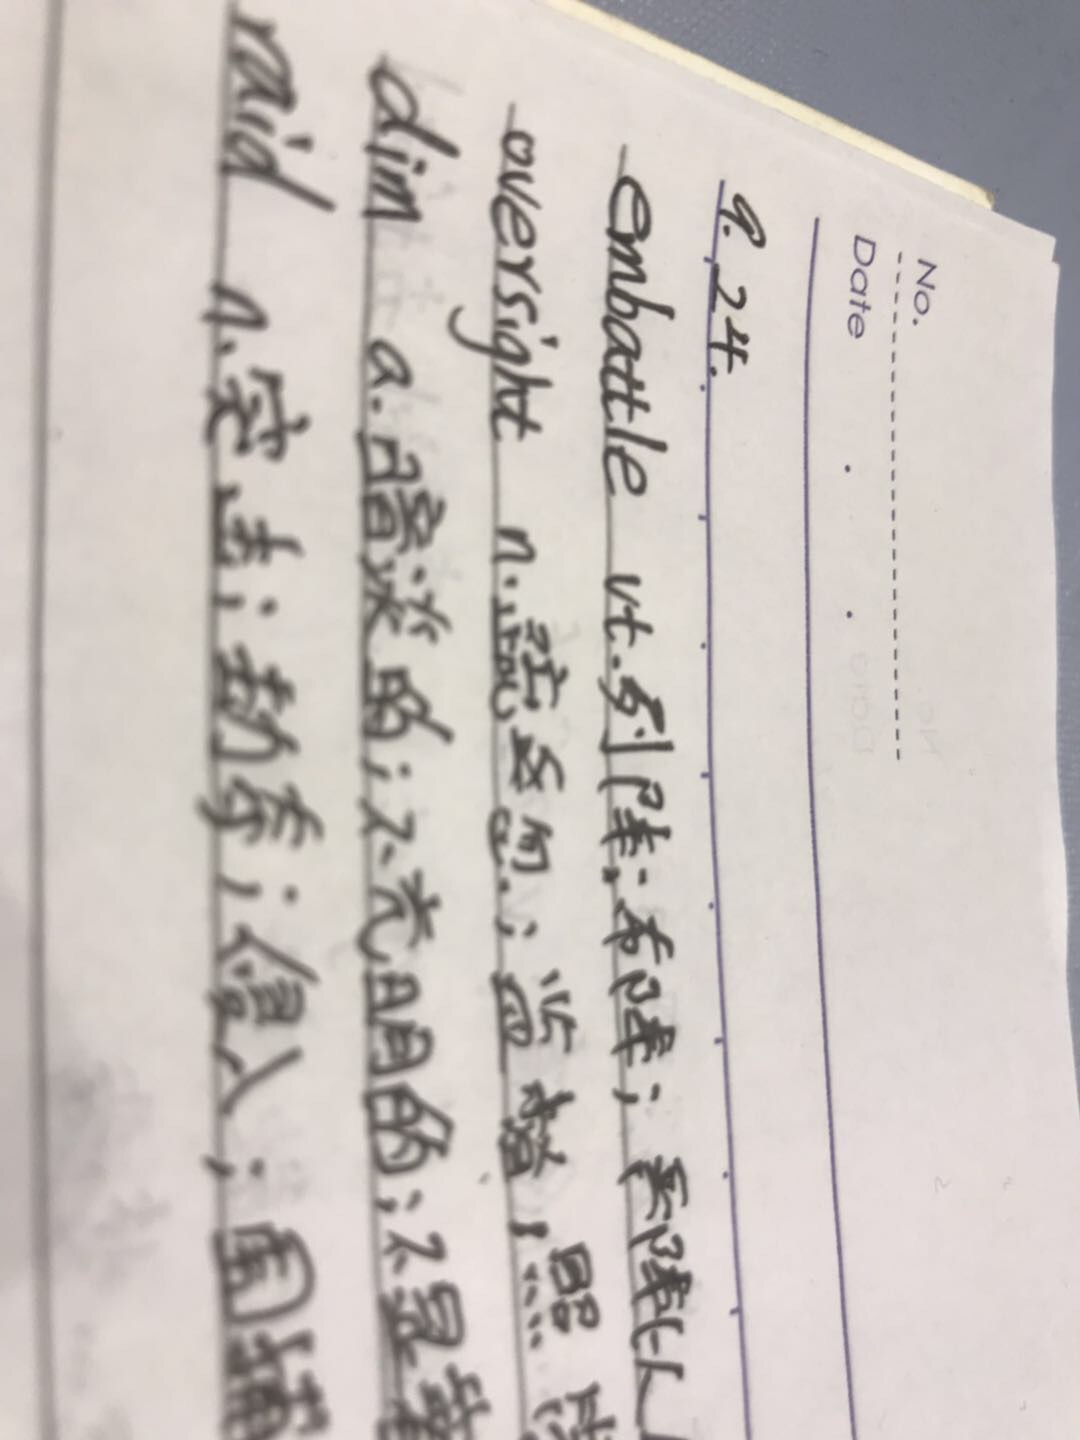 No.
Date
9.24.
embattle vt.列阵;布阵;严阵以
oversight n.疏忽;监督;照
dim a.暗淡的;不亮的;不显
raid n.突击;劫;侵入;围捕